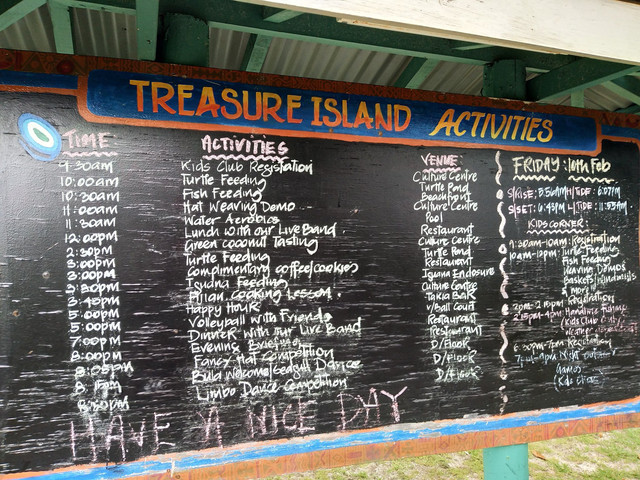 TREASURE ISLAND ACTIVITIES
TIME
9:30am
10:00am
10:30am
11:00am
11:30am
12:00pm
2:30pm
3:00pm
3:00pm
3:00pm
5:00pm
5:00pm
7:00pm
8:00pm
8:05pm
8:15pm
8:30pm
ACTIVITIES
Kids Club Registration
Turtle Feeding
Fish Feeding
Hat Weaving Demo
Water Aerobics
Lunch with our Live Band
Green coconut Tasting
Turtle Feeding
Complimentary coffee/cookies
Iguana Feeding
Fijian Cooking Lesson
Happy Hour
Volleyball with Friends
Dinner with our Live Band
Evening Briefing
Fancy Hat Competition
Bula Welcome Dance
Limbo Dance Competition
VENUE
Culture Centre
Turtle Pond
Beachfront
Culture Centre
Pool
Restaurant
Culture Centre
Turtle Pond
Restaurant
Iguana Enclosure
Culture Centre
Takia Bar
V/Ball Court
Restaurant
Restaurant
D/Floor
D/Floor
D/Floor
FRIDAY: 10th Feb
S/RISE: H/TIDE: 6:07PM
S/SET: 6:43PM L/TIDE: 11:53AM
KIDS CORNER:
9:30am-10am: Registration
10am-12pm: Turtle Feeding
Fish Feeding
Weaving Demos
Baskets
& more
Registration
Handline Fishing
(Kids Club Only)
Weather
6:00pm-7pm Registration
Night
Games
(Kids
HAVE A NICE DAY